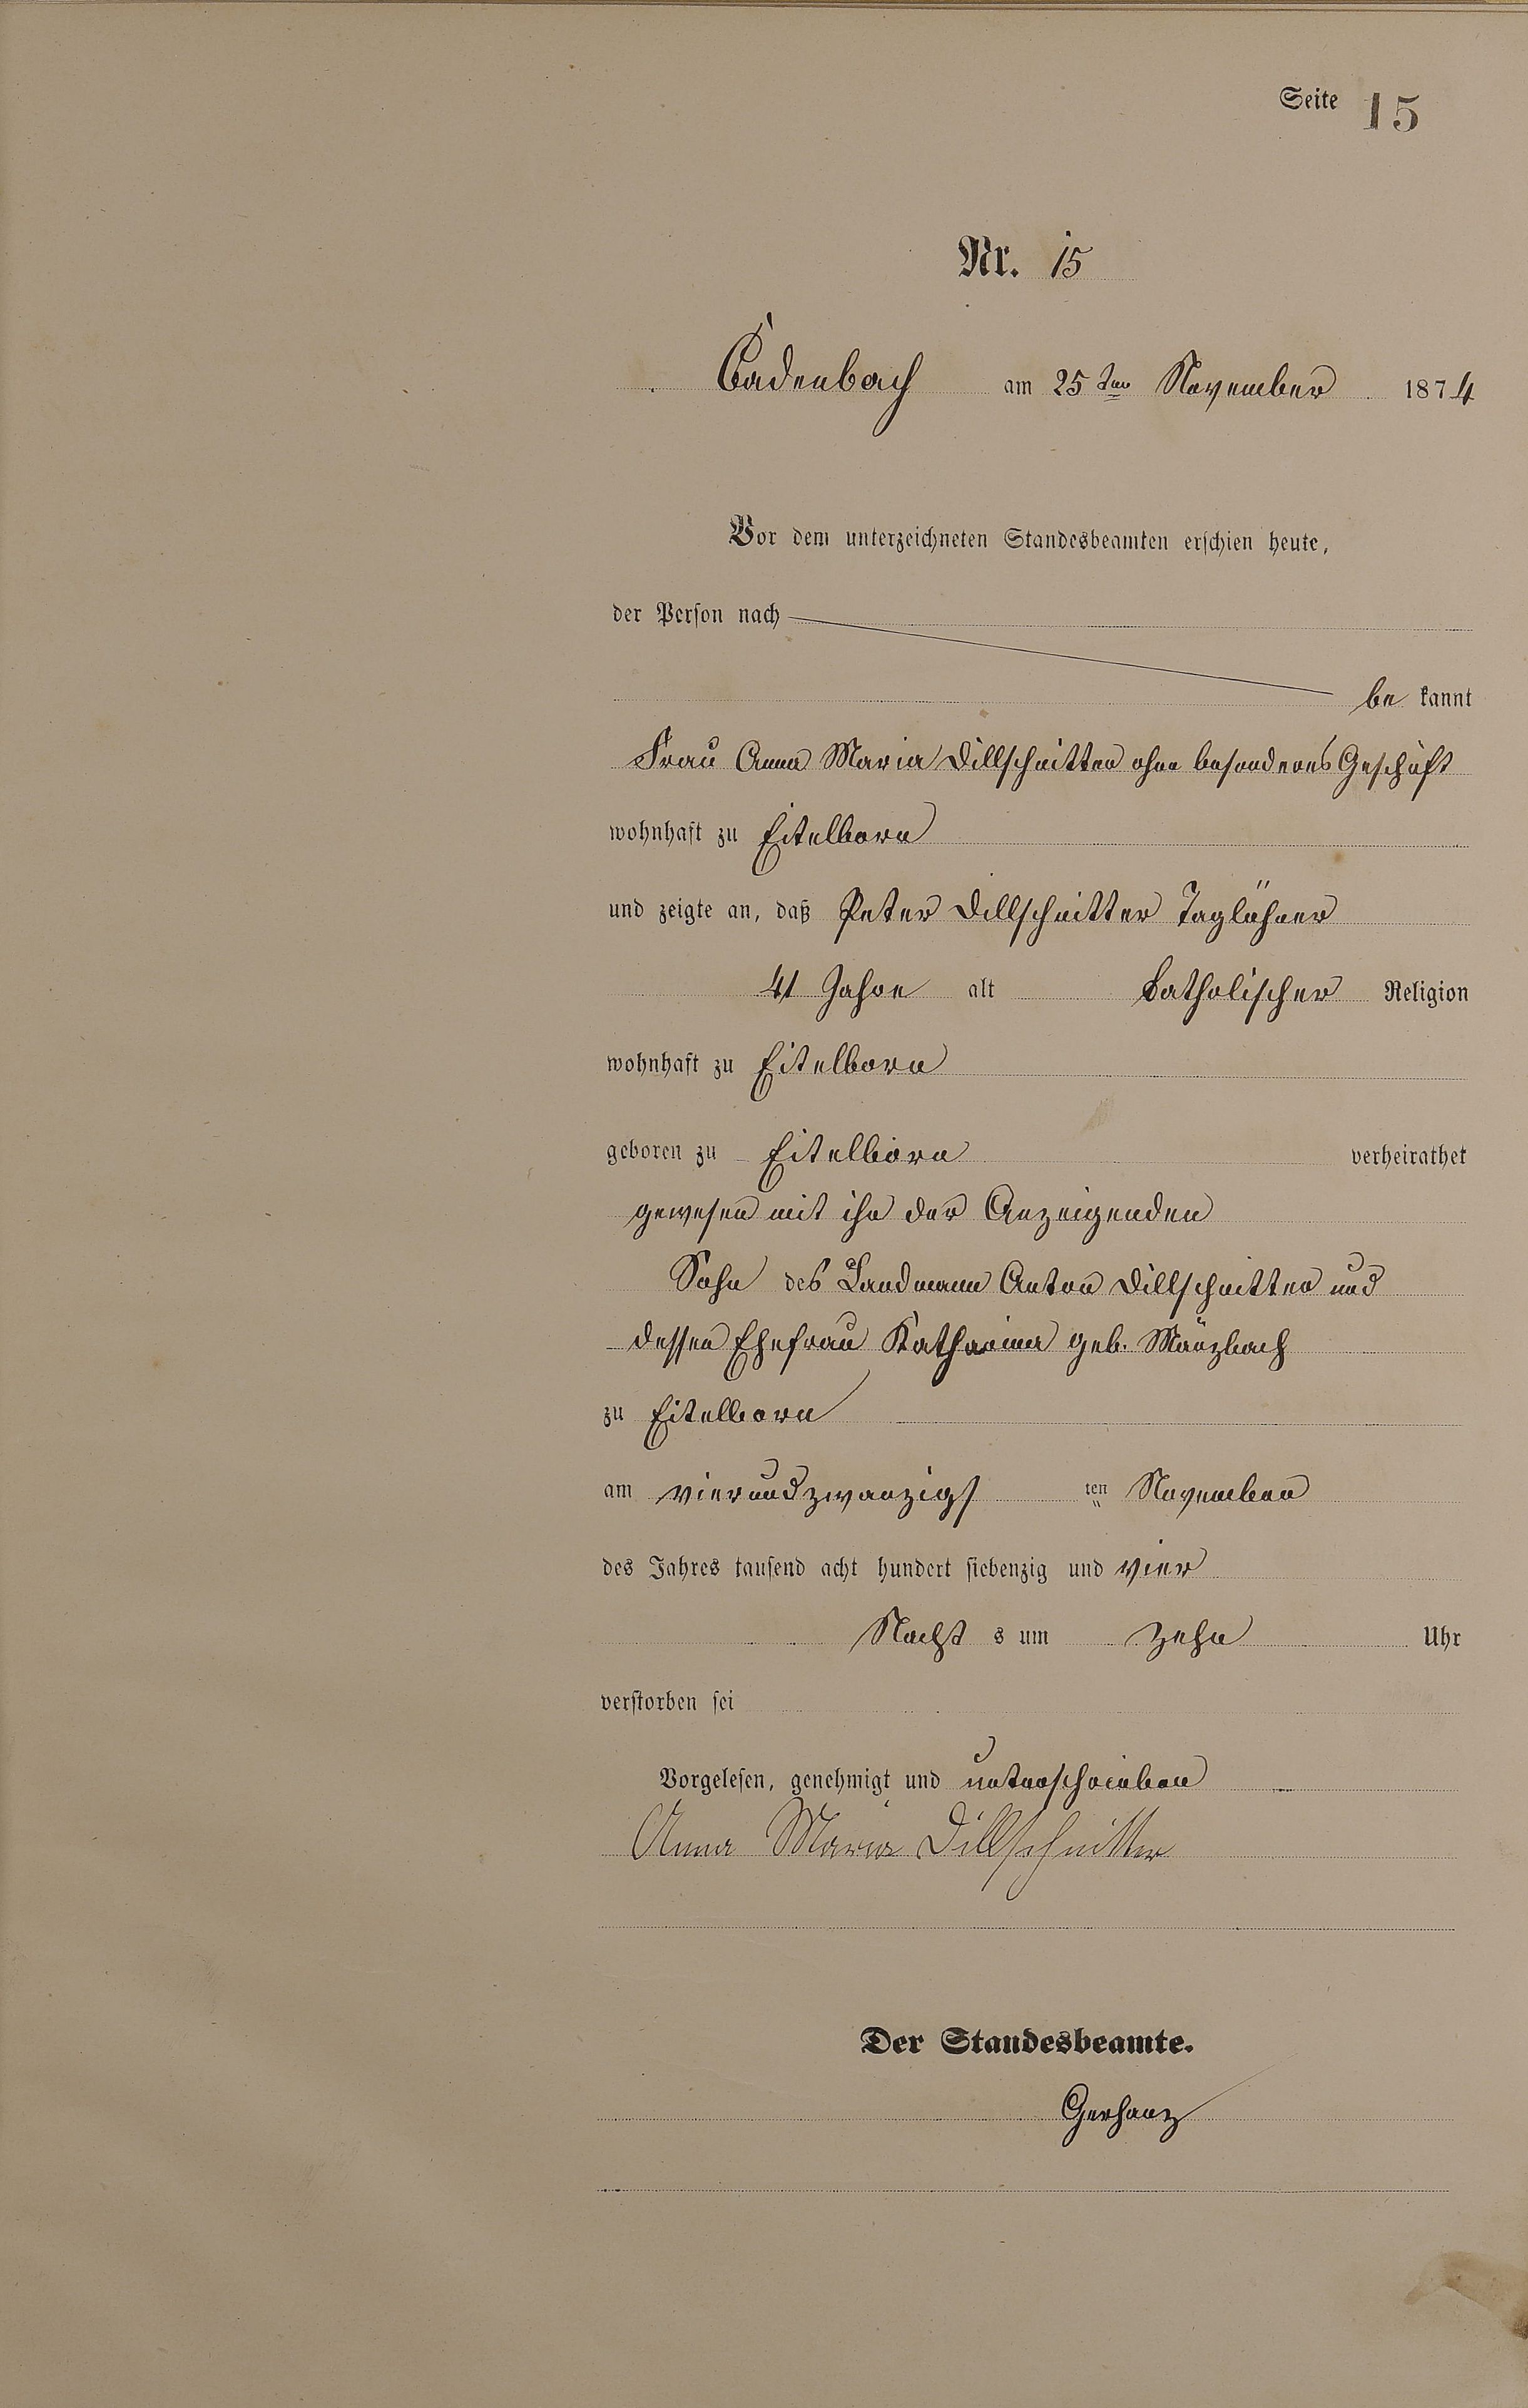 Seite 15
Nr. 15
Cadenbach am 25ten November 1874
Vor dem unterzeichneten Standesbeamten erschien heute,
der Person nach
be kannt
Frau Anna Maria Dillschnitter ohne besonderes Geschäft
wohnhaft zu Eitelborn
und zeigte an, daß Peter Dillschnitter Taglöhner
41 Jahre alt katholischer Religion
wohnhaft zu Eitelborn
geboren zu Eitelborn verheirathet
gewesen mit ihr der Anzeigenden
Sohn des Landmann Anton Dillschnitter und
dessen Ehefrau Katharina geb.
zu Eitelborn
am vierundzwanzigs ten November
des Jahres tausend acht hundert siebenzig und vier
Nacht s um zehn Uhr
verstorben sei
Vorgelesen, genehmigt und unterschrieben
Anna Maria Dillschnitter
Der Standesbeamte.
Gerharz